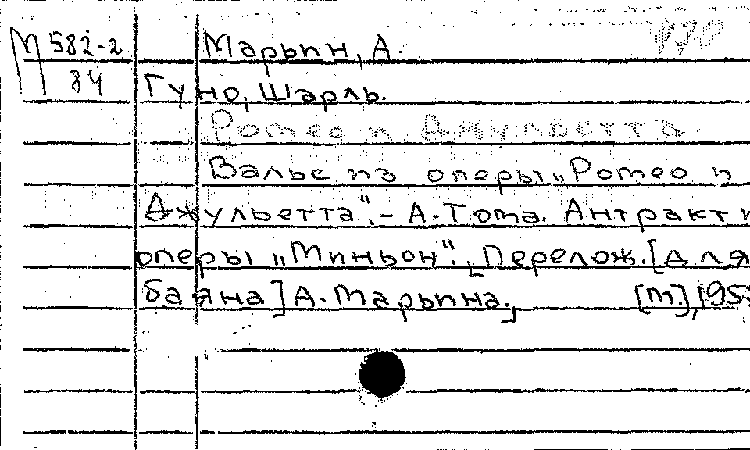 М 582-2 Марьин, А.
84 Гуно, Шарль.
Ромео и Джульетта.
Вальс из оперы „Ромео и
Джульетта“. - А. Тома. Антракт и
оперы „Миньон“. [Перелож. [для
баяна] А. Марьина.] [М], 195